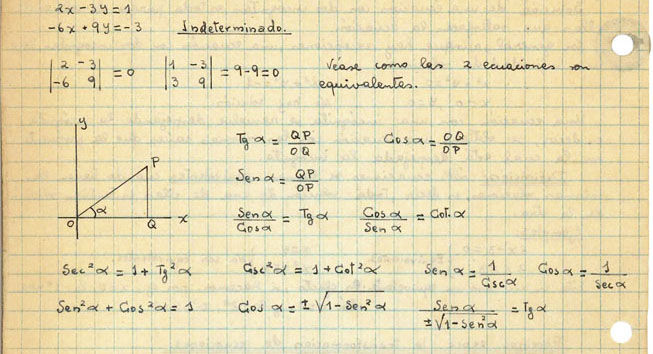 2x - 3y = 1
-6x + 9y = -3 Indeterminado.
|2 -3; -6 9| = 0 |1 -3; 3 9| = 9-9 = 0 Véase como las 2 ecuaciones son
equivalentes.
y
P
α
O Q x
Tg α = QP/OQ Cos α = OQ/OP
Sen α = QP/OP
Sen α/Cos α = Tg α Cos α/Sen α = Cot. α
Sec² α = 1 + Tg² α Csc² α = 1 + Cot² α Sen α = 1/Csc α Cos α = 1/Sec α
Sen² α + Cos² α = 1 Cos α = ± √(1 - Sen² α) Sen α/±√(1 - Sen² α) = Tg α